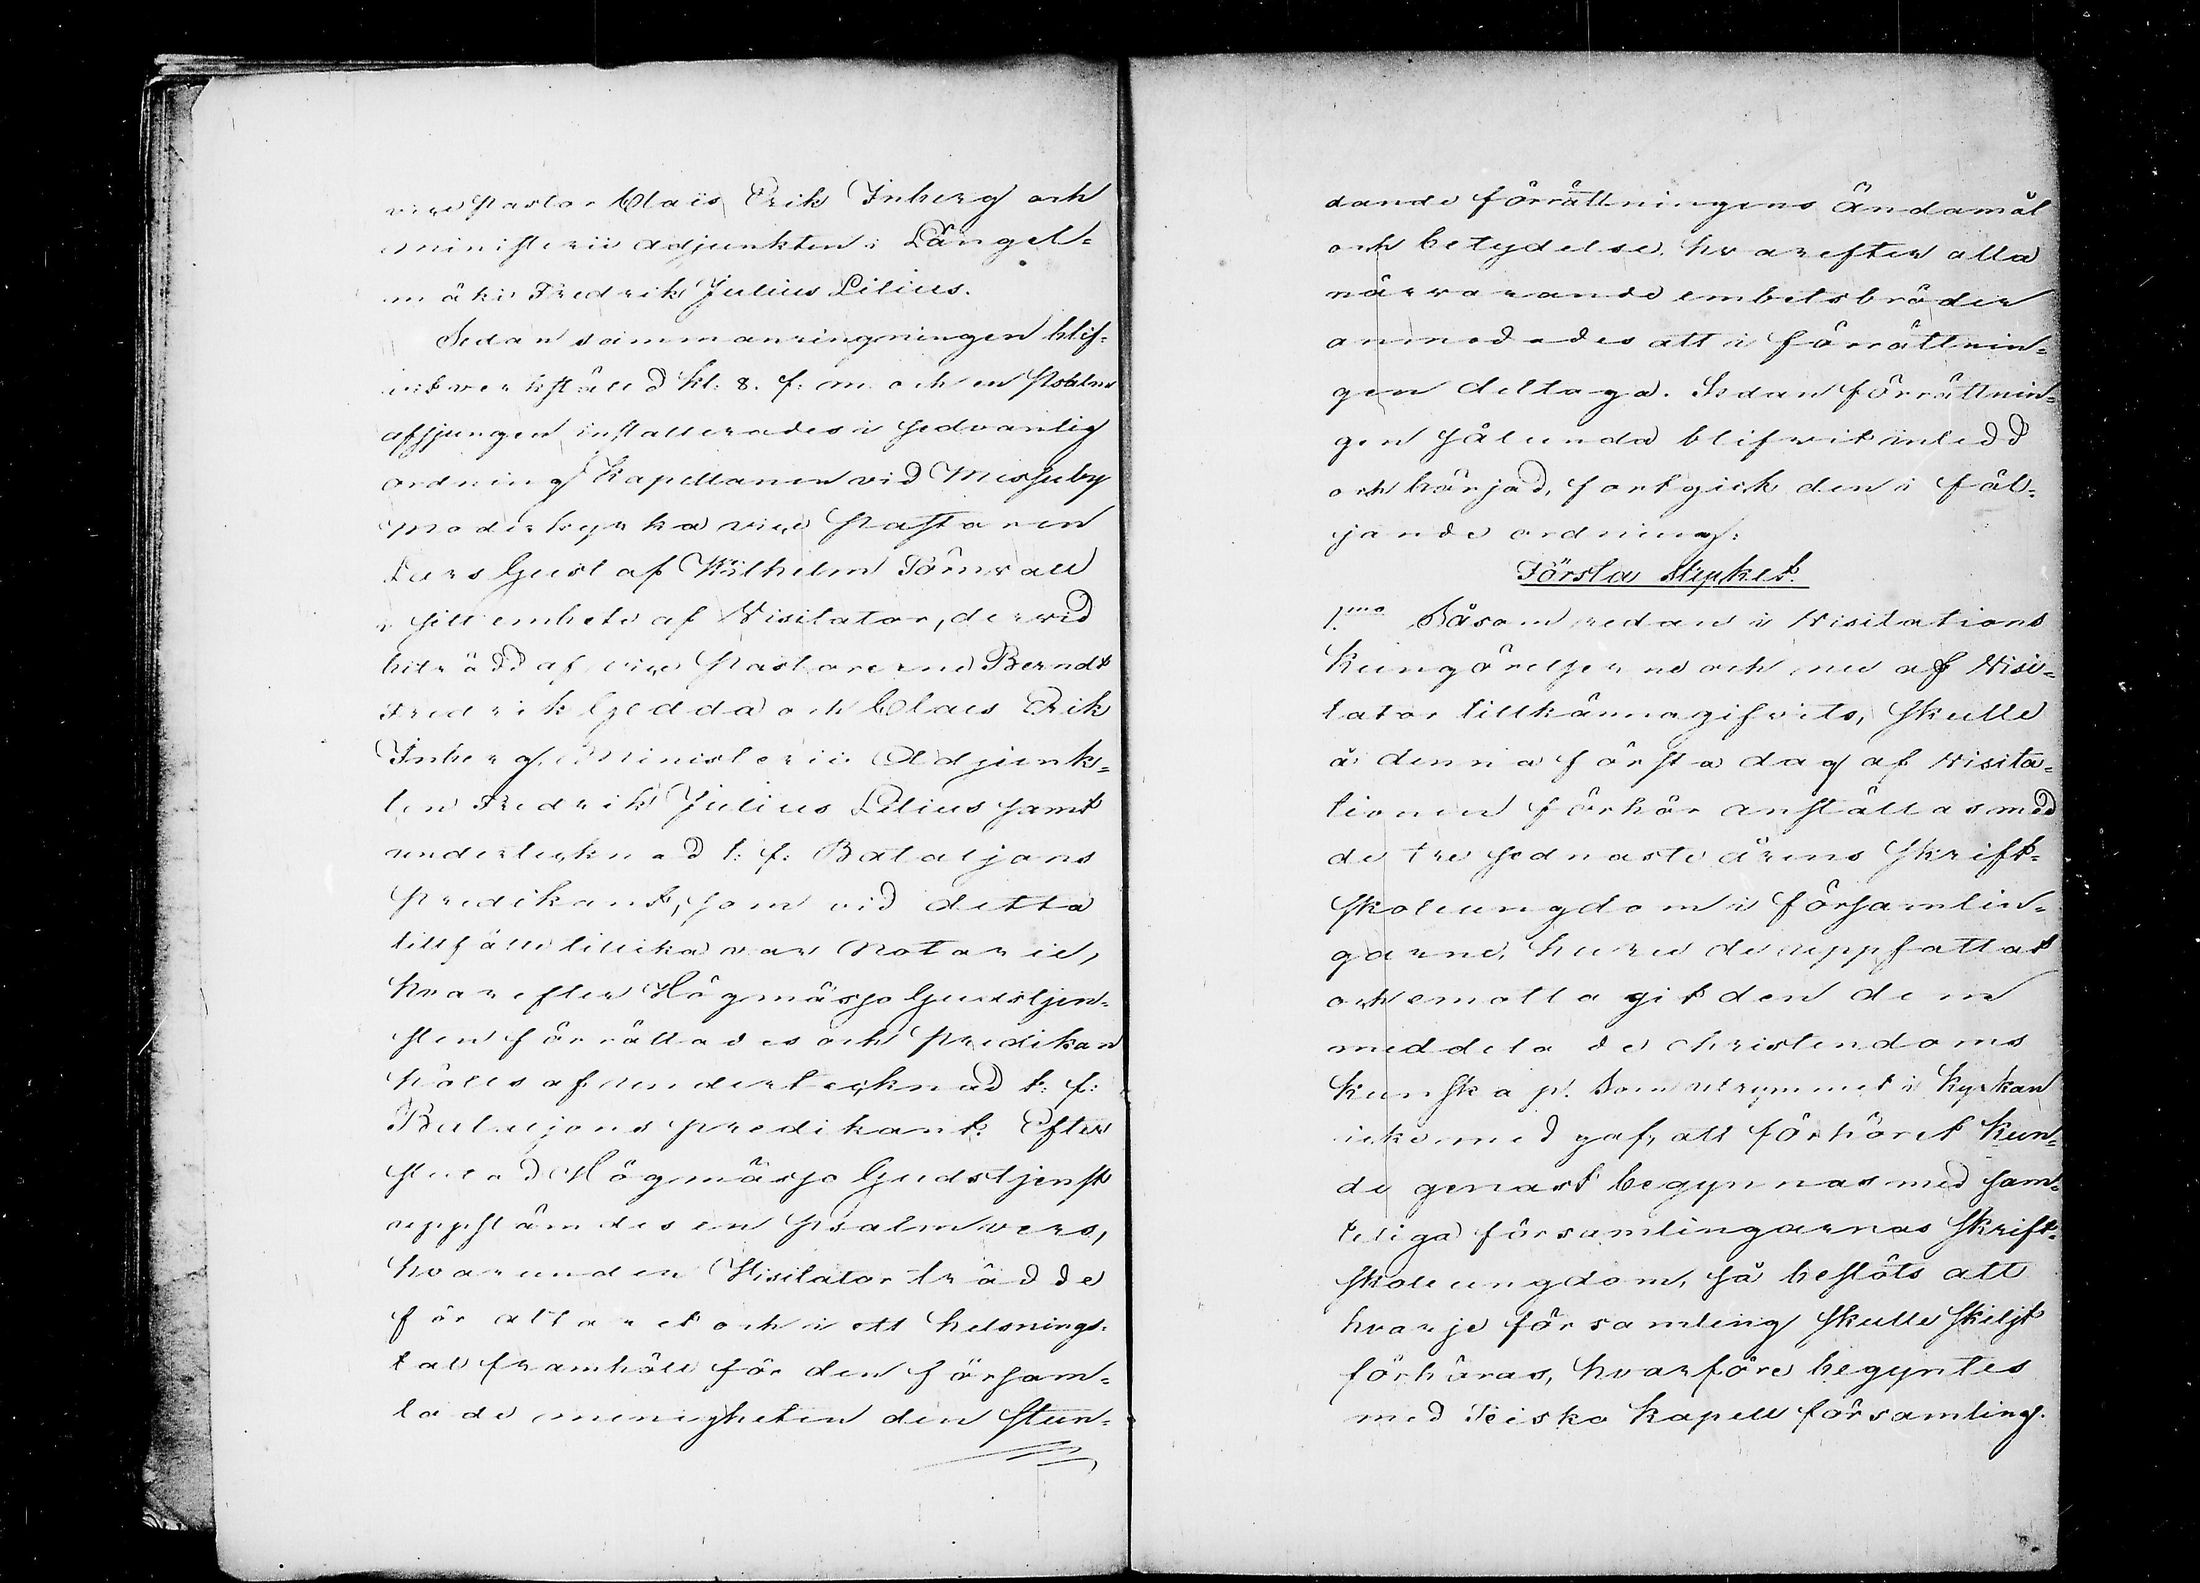 vice Pastor Claës Erik Inberg och
ministerii adjunkten i Längel-
mäki Fredrik Julius Lilius.
Sedan sammanringningen blif-
vit verkställd kl: 8. f: m. och en Psalm
afsjungen installerades i sedvanlig
ordning Kapellanen vid Messuby
Moderkyrka vice Pastoren
Lars Gustaf Wilhelm Törnvall
i sitt embete af Visitator, dervid
biträdd af vice Pastorerne Berndt
Fredrik Gedda och Claes Erik
Inberg, Ministerii Adjunk-
ten Fredrik Julius Lilius samt
undertecknad t: f: Bataljons
predikant, som vid detta
tillfälle tillika var Notarie,
hvarefter Högmässo Gudstjen-
sten förrättades och predikan
hölls af undertecknad t: f:
Bataljons predikant. Efter
slutad Högmässo Gudstjenst
uppstämdes en psalmvers,
hvarunder Visitator trädde
för altaret och i ett helsnings-
tal framhöll för den försam-
lade menigheten den stun-
dande förrättningens ändamål
och betydelse, hvarefter alla
närvarande embetsbröder
anmodades att i förrättnin-
gen deltaga. Sedan förrättnin-
gen sålunda blifvit inledd
och börjad, fortgick den i föl-
jande ordning:
Första Stycket.
1.mo Såsom redan i Visitations
Kungörelserne och nu af Visi-
tator tillkännagifvits, skulle
å denna första dag af Visita-
tionen förhör anställas med
de tre sednaste årens Skrift-
skoleungdom i församlin-
garne, huru de uppfattat
och emottagit den dem
meddelade christendoms
kunskap. Som utrymmet i Kyrkan
icke medgaf, att förhöret kun-
de genast begynnas med sam-
teliga församlingarnas Skrift-
skoleungdom, så beslöts att
hvarje församling skulle skiljt
förhöras, hvarföre begyntes
med Teisko Kapell församling.